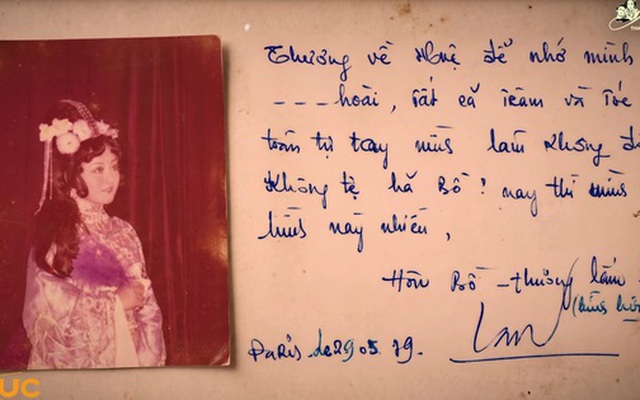 Thương về Huệ để nhớ mình
---hoài, Tất cả Trâm và Tóc
toàn tự tay mình làm không
Không tệ hả Bồ! nay thì mình
hình này nhiều,
Hôn Bồ - thương lắm
Lan
PARIS le 29 05 79.
UC